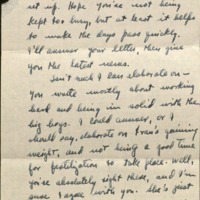 set up. Hope you're not being
kept too busy, but at least it helps
to make the days pass quickly.
I'll answer your letter, then give
you the latest news.
Isn't much I can elaborate on—
you wrote mostly about working
hard and being in solid with the
big boys. I could answer, or I
should say, elaborate on Fran's gaining
weight, and not being a good time
for fertilization to take place. Well,
you're absolutely right there, and I'm
sure I agree with you. She's just